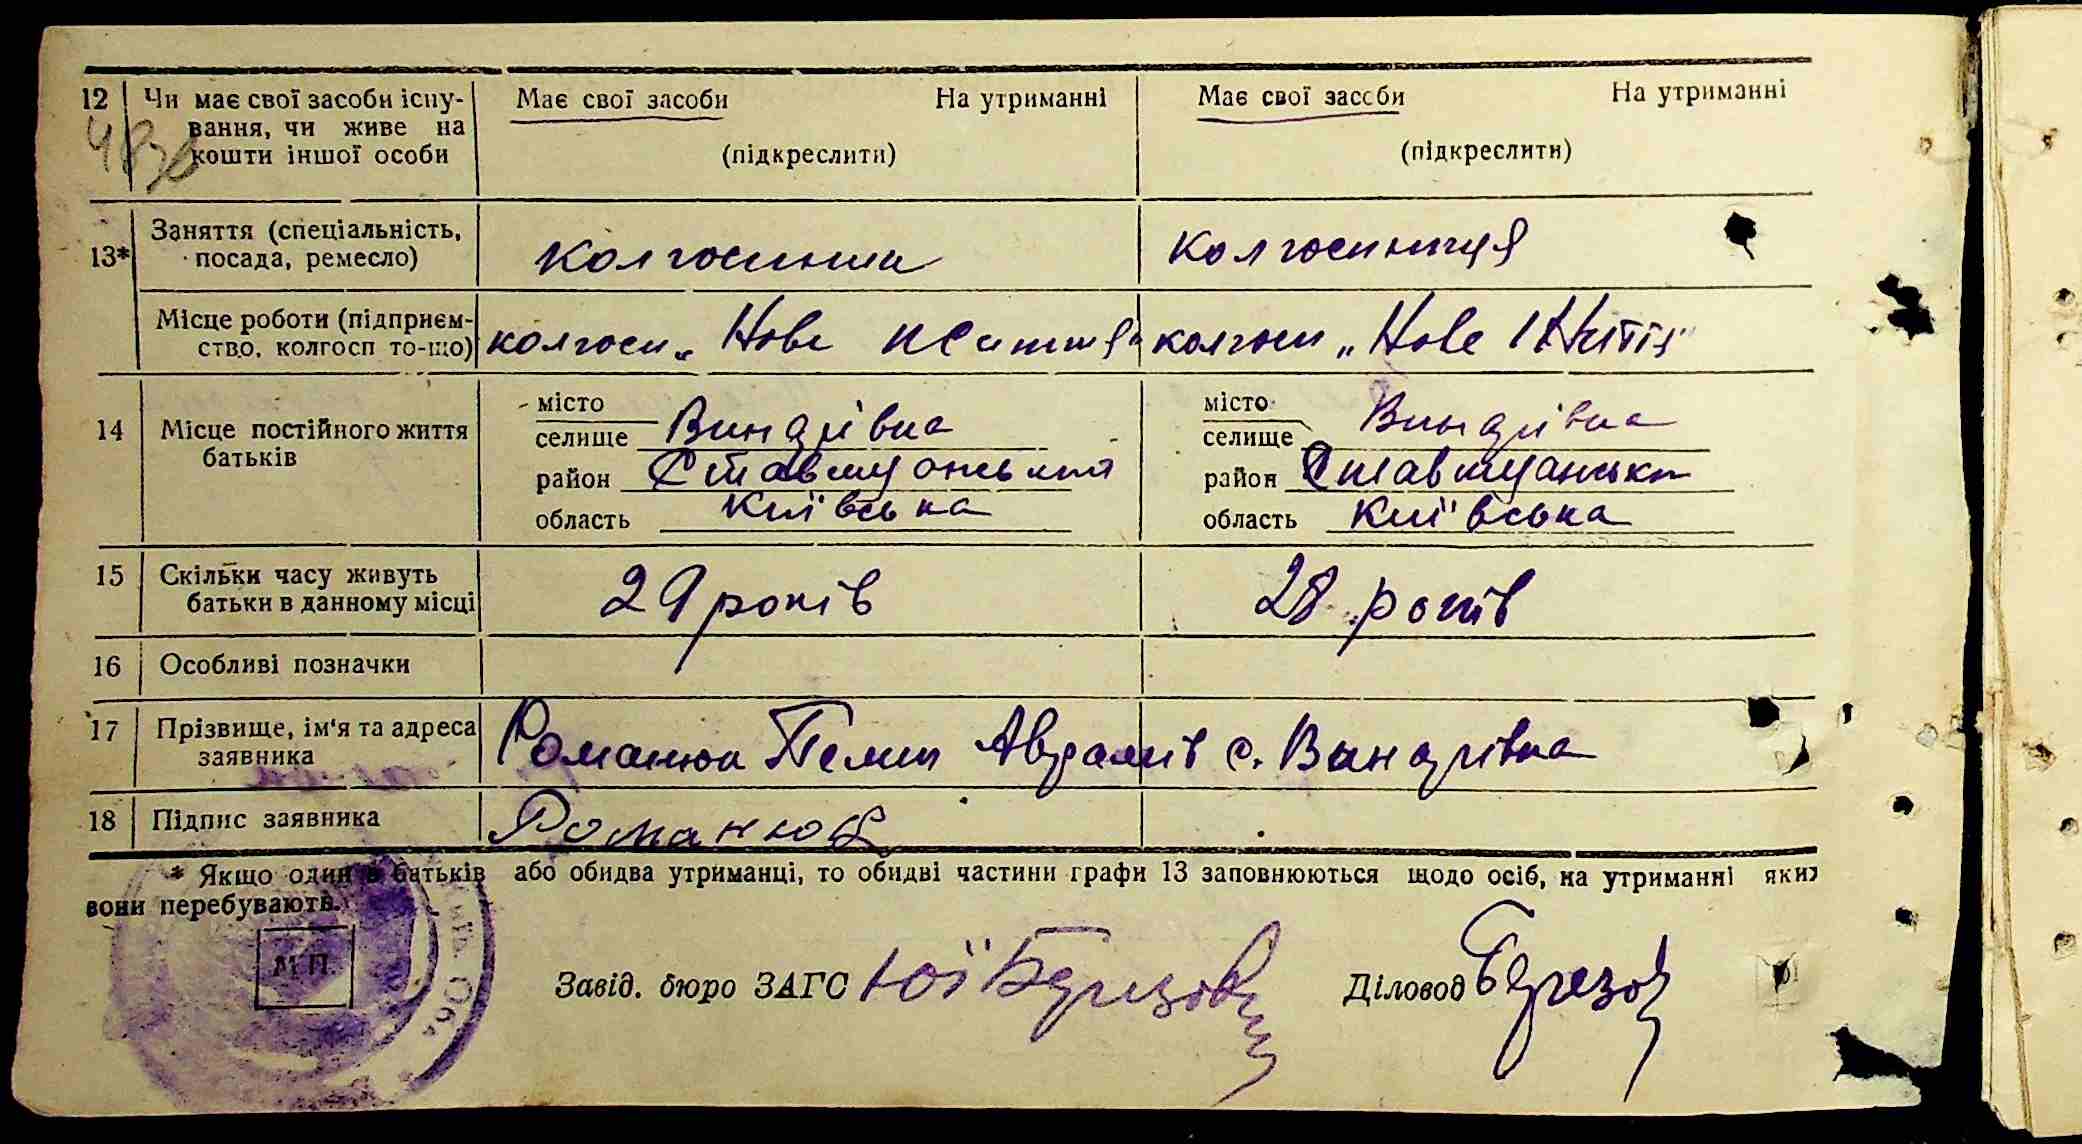 12 Чи має свої засоби існу-
вання, чи живе на
кошти іншої особи
Має свої засоби На утриманні
(підкреслити)
Має свої засоби На утриманні
(підкреслити)
13* Заняття (спеціальність,
посада, ремесло)
колгоспник
колгоспниця
Місце роботи (підприєм-
ство, колгосп то-що)
колгосп „Нове життя"
колгосп „Нове життя"
14 Місце постійного життя
батьків
місто
селище Винарівка
район Ставищанський
область Київська
місто
селище Винарівка
район Ставищанськ
область Київська
15 Скільки часу живуть
батьки в данному місці
29 років
28 років
16 Особливі позначки
17 Прізвище, ім'я та адреса
заявника
Романюк с. Винарівка
18 Підпис заявника
Романюк
* Якщо один з батьків або обидва утриманці, то обидві частини графи 13 заповнюються щодо осіб, на утриманні яких
вони перебувають.
М.П.
Завід. бюро ЗАГС
Діловод